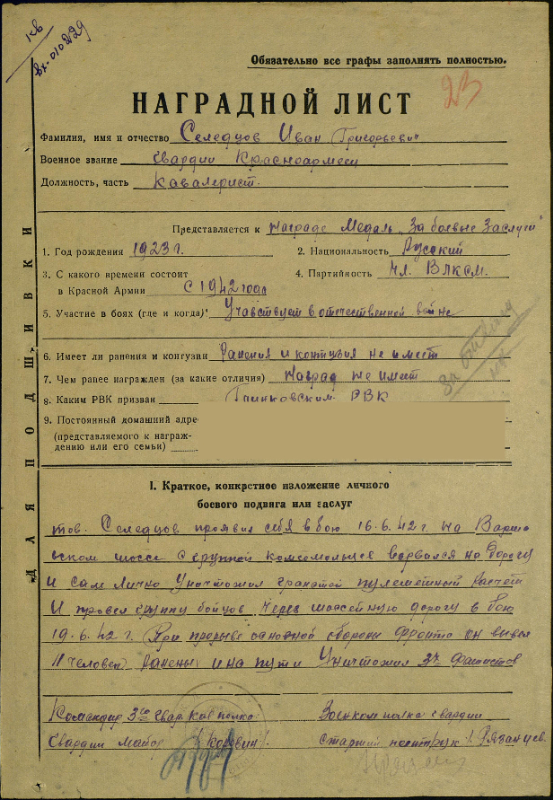 кв
вх-010229
Обязательно все графы заполнять полностью.
23
НАГРАДНОЙ ЛИСТ
Фамилия, имя и отчество Селедцов Иван Григорьевич
Военное звание Гвардии Красноармеец
Должность, часть Кавалерист.
Представляется к награде Медаль „За боевые заслуги"
1. Год рождения 1923 г. 2. Национальность Русский
3. С какого времени состоит
в Красной Армии с 1942 года 4. Партийность чл. ВЛКСМ.
5. Участие в боях (где и когда) Учавствует в отечественной войне
6. Имеет ли ранения и контузии Ранения и контузия не имеет
7. Чем ранее награжден (за какие отличия) Наград не имеет
За отвагу
8. Каким РВК призван РВК
9. Постоянный домашний адре
(представляемого к награж-
дению или его семьи)
ДЛЯ ПОДШИВКИ
I. Краткое, конкретное изложение личного
боевого подвига или заслуг
тов. Селедцов проявил себя в бою 16.6.42 г на Варша
вском шоссе с группой комсомольцев ворвался на дорогу
и сам лично уничтожил гранатой пулеметный расчет
и провел группу бойцов через шоссейную дорогу в бою
19.6.42 г. При прорыве обороны фронта он вывел
11 человек ранены и на пути уничтожил 3х фашистов
Командир 3го Гвар кав полка Военком полка гвардии
Гвардии Майор /Коровин/ Старший политрук /Рязанцев.